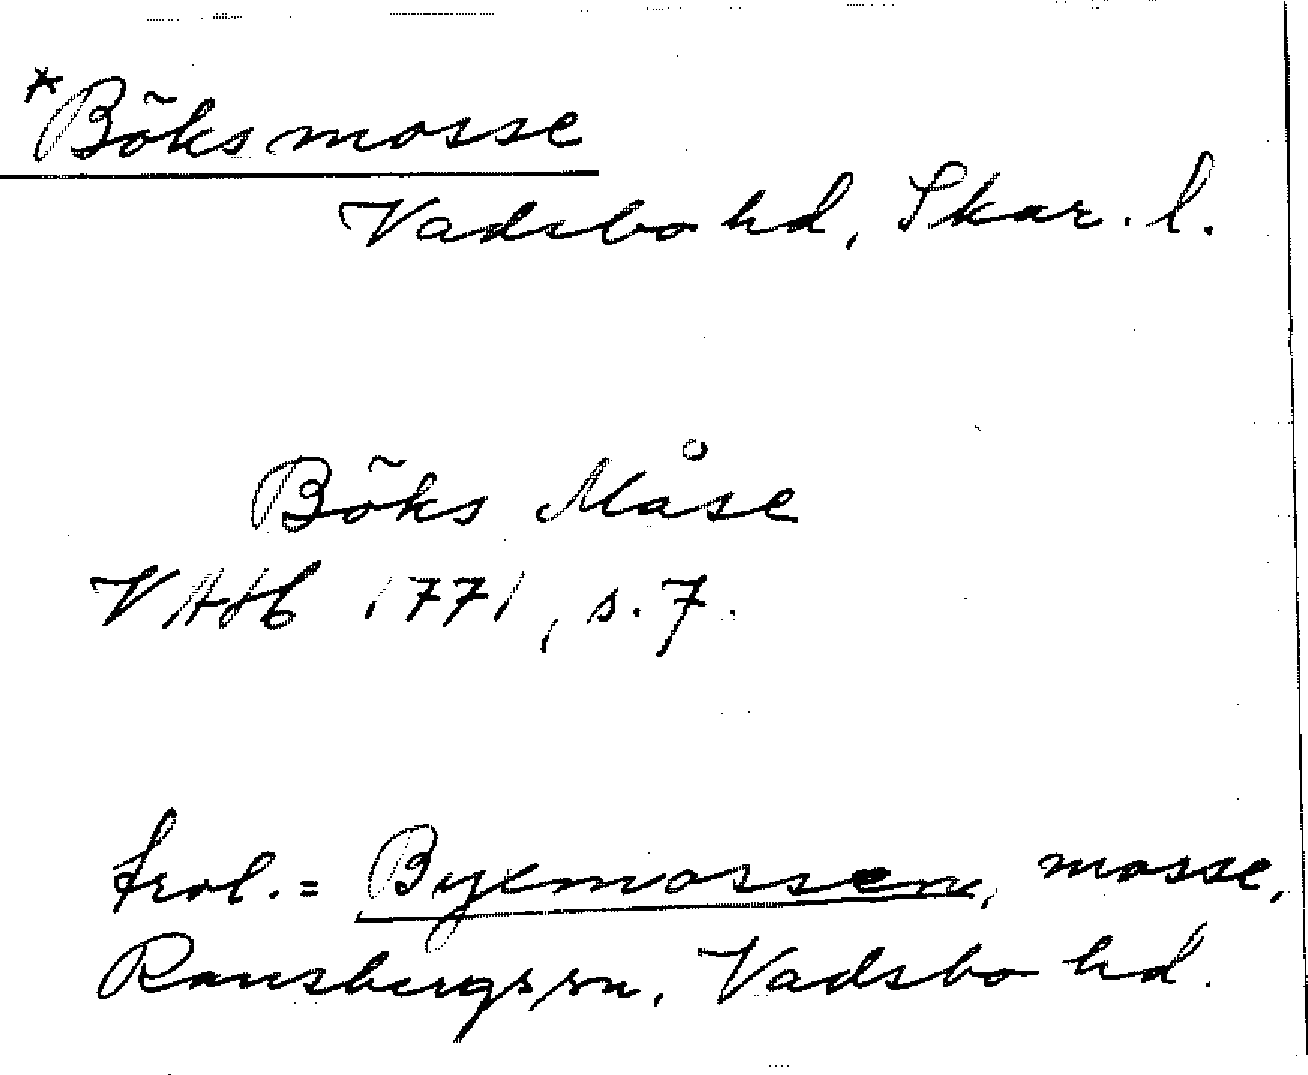 *Böksmosse
Vadsbo hd, Skar. l.
Böks Måse
VAHb 1771, s. 7.
trol. = Byemossen, mosse,
Ransbergs sn, Vadsbo hd.